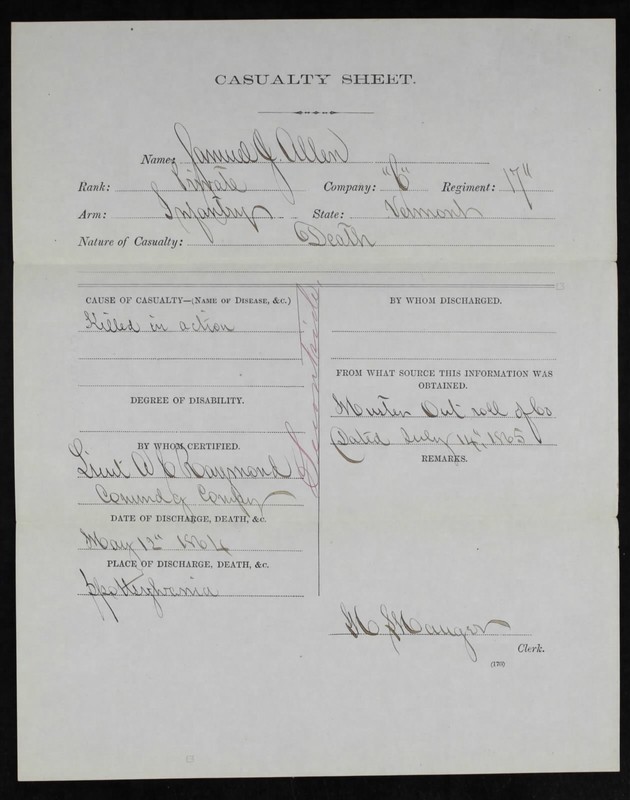 CASUALTY SHEET.
Name: Samuel J Allen
Rank: Private Company: "C" Regiment: 17"
Arm: Infantry State: Vermont
Nature of Casualty: Death
CAUSE OF CASUALTY—(NAME OF DISEASE, &C.)
Killed in action
DEGREE OF DISABILITY.
BY WHOM CERTIFIED.
Lieut W C Raymond
Command'g Company
DATE OF DISCHARGE, DEATH, &C.
May 12" 1864
PLACE OF DISCHARGE, DEATH, &C.
Spottsylvania
BY WHOM DISCHARGED.
FROM WHAT SOURCE THIS INFORMATION WAS
OBTAINED.
Muster Out roll of Co
Dated July 14", 1865
REMARKS.
Clerk.
(170)